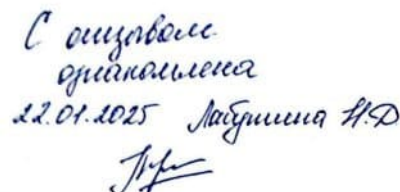 С отзывом
ознакомлена
22.01.2025 Лабушина Н.Д